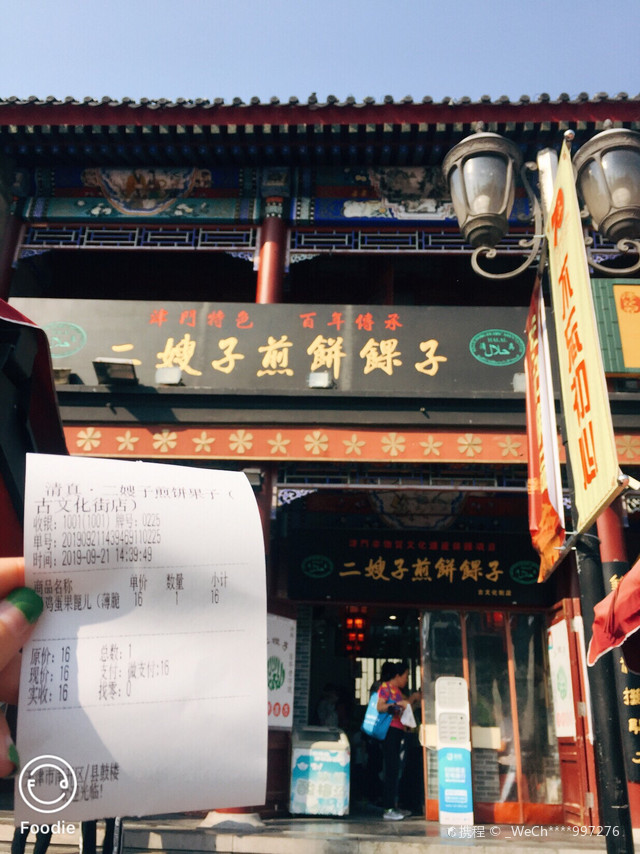 津門特色 百年傳承
二嫂子煎餅餜子
HALAL
清真
不忘初心
二嫂子煎餅餜子
古文化街店
清真·二嫂子煎饼果子（
古文化街店）
收银: 1001(1001) 牌号: 0225
时间: 2019-09-21 14:39:49
商品名称 单价 数量 小计
鸡蛋果篦儿（薄脆 16 1 16
原价: 16 总数: 1
现价: 16 支付: 微支付:16
实收: 16 找零: 0
区/县鼓楼
Foodie
携程 © _WeCh****997276